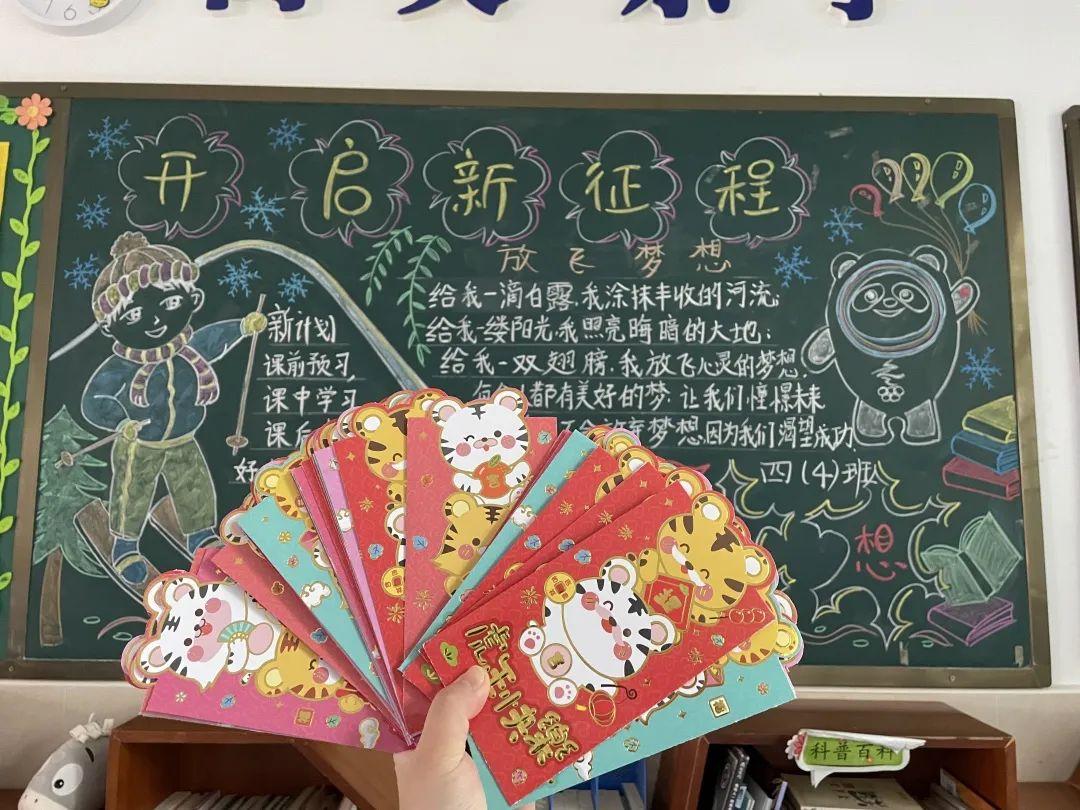 开启新征程
放飞梦想
给我一滴白露,我涂抹丰收的河流;
给我一缕阳光,我照亮晦暗的大地;
给我一双翅膀,我放飞心灵的梦想,
都有美好的梦 让我们憧憬未来
梦想因为我们渴望成功
四(4)班
新计划
课前预习
课中学习
课后
好
想
科普百科